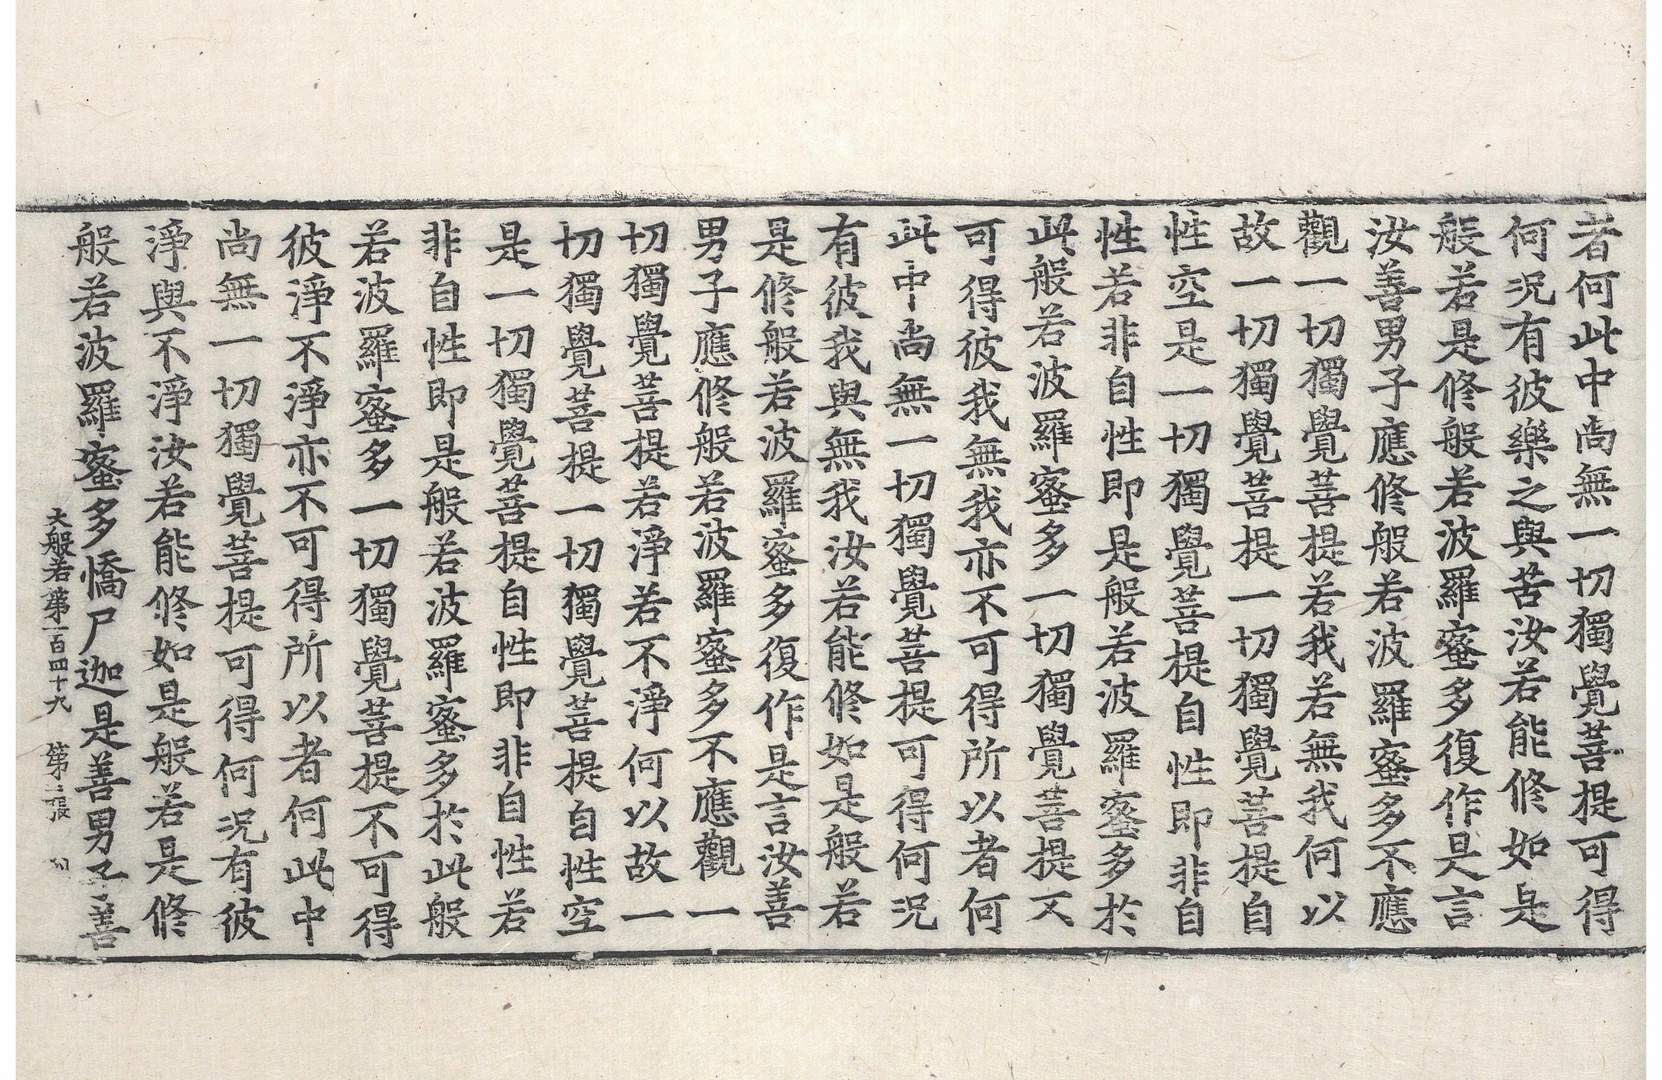 者何此中尚無一切獨覺菩提可得
何況有彼樂之與苦汝若能修如是
般若是修般若波羅蜜多復作是言
汝善男子應修般若波羅蜜多不應
觀一切獨覺菩提若我若無我何以
故一切獨覺菩提一切獨覺菩提自
性空是一切獨覺菩提自性即非自
性若非自性即是般若波羅蜜多於
此般若波羅蜜多一切獨覺菩提不
可得彼我無我亦不可得所以者何
此中尚無一切獨覺菩提可得何況
有彼我與無我汝若能修如是般若
是修般若波羅蜜多復作是言汝善
男子應修般若波羅蜜多不應觀一
切獨覺菩提若淨若不淨何以故一
切獨覺菩提一切獨覺菩提自性空
是一切獨覺菩提自性即非自性若
非自性即是般若波羅蜜多於此般
若波羅蜜多一切獨覺菩提不可得
彼淨不淨亦不可得所以者何此中
尚無一切獨覺菩提可得何況有彼
淨與不淨汝若能修如是般若是修
般若波羅蜜多憍尸迦是善男子善
大般若第一百四十九 第二張